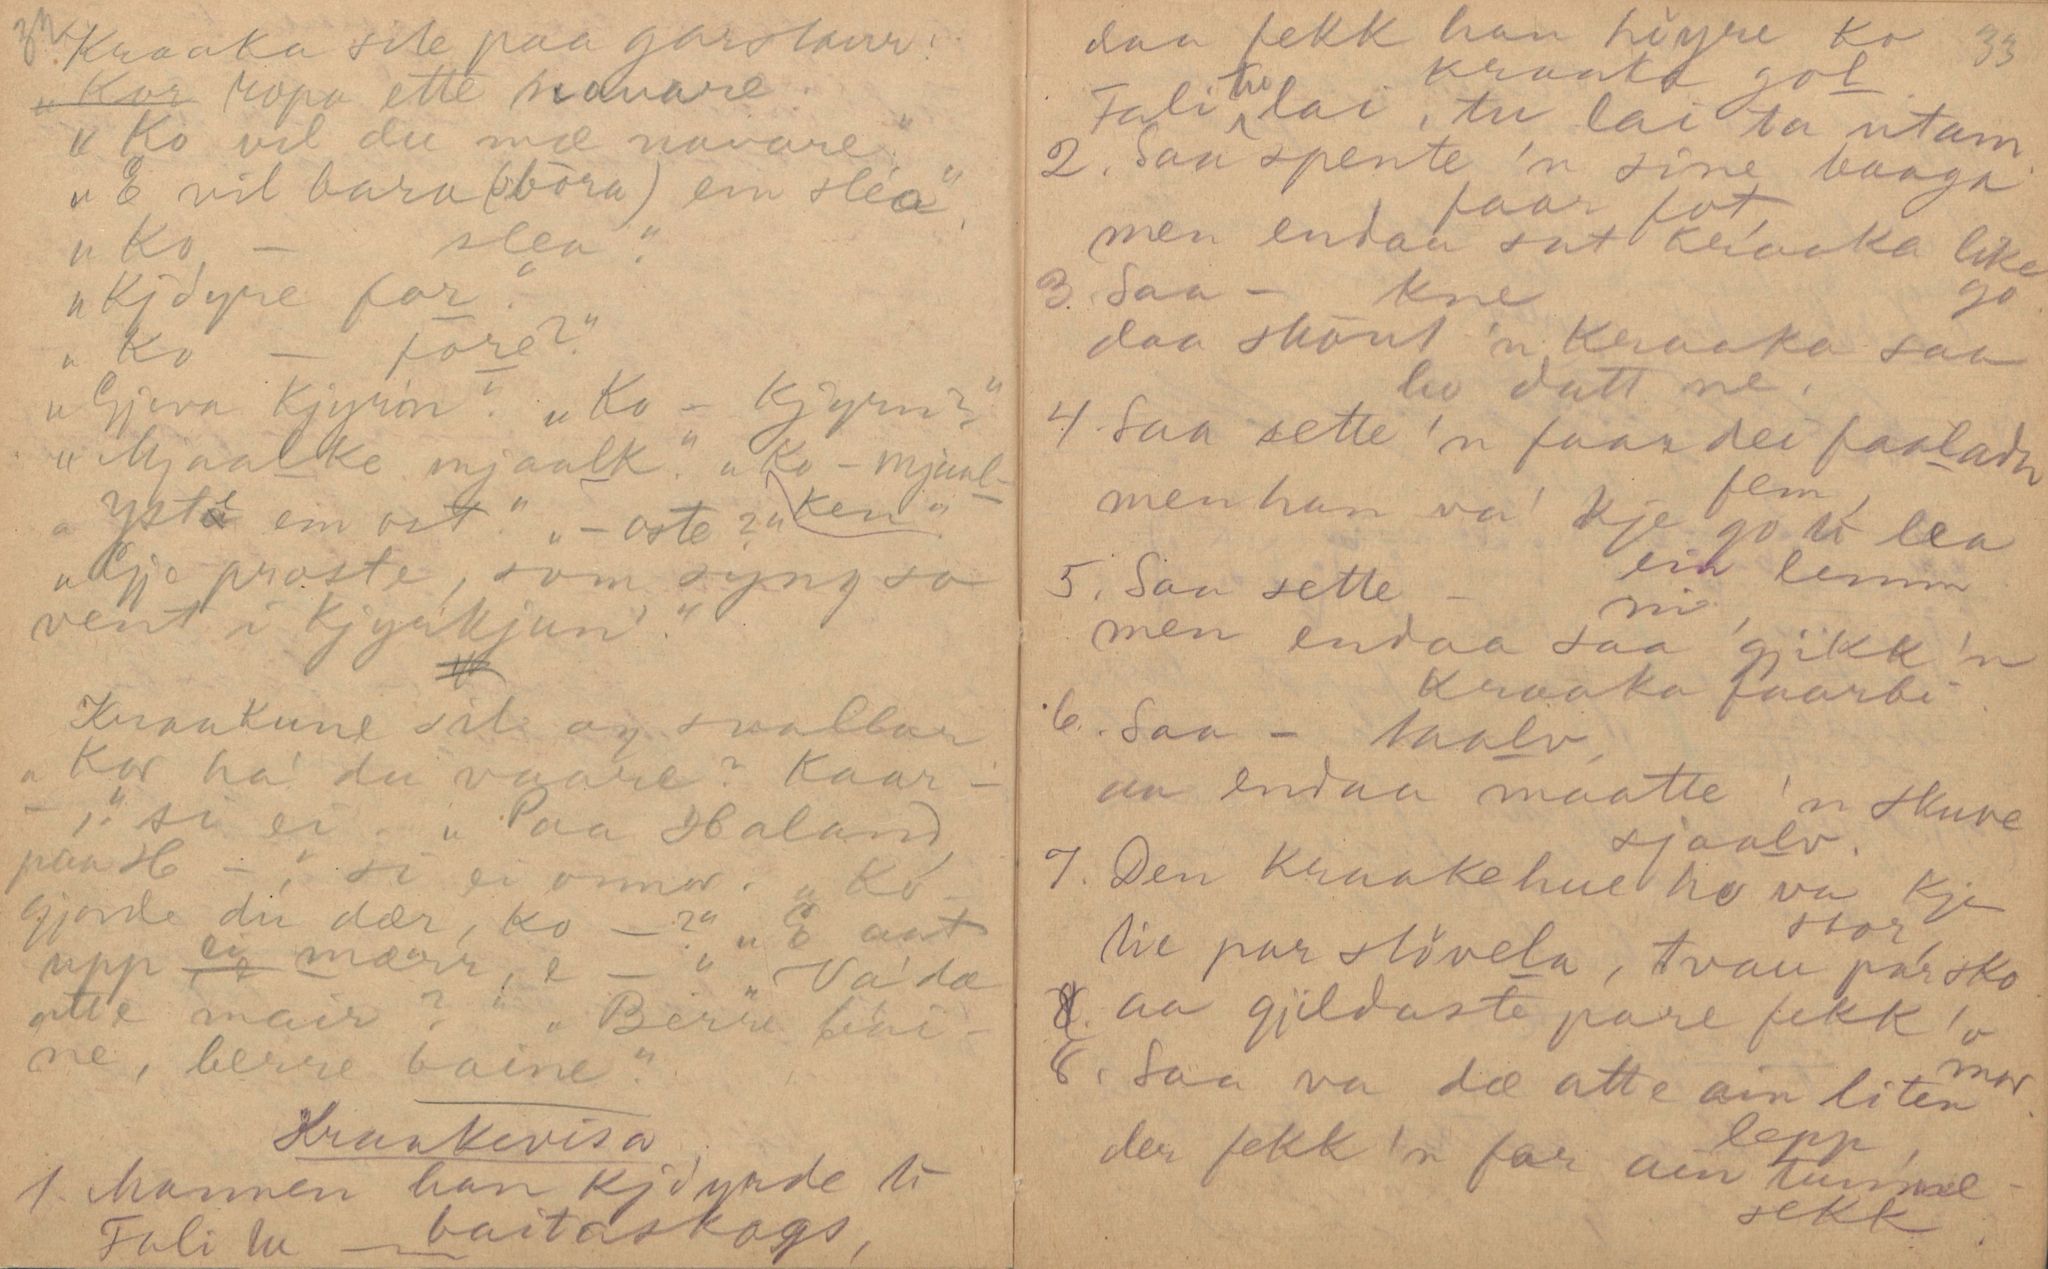 32.
Kraaka sit paa garstaur:
"Kor ropa ette navare.
"Ko vil du mæ navare."
"E vil bara (bòra) ein slèa",
"Ko — slea".
"Kjöyre for."
"Ko — fore?"
"Gjeva Kjyrin". "Ko – Kjyrn?"
"Mjaalke mjaalk." "Ko – mjaal-
ken"
"Yste ein ost." "– oste?"
"Gje proste, som syng so
vent i Kjyrkjun'."
Kraakune sit og svallar
"Kor ha' du vaare? Kaar –
– ", si ei. "Paa Haland,
paa H –", si ei onnor. "Ko
gjorde du dær, ko –?" "E aat
upp ei mærr, e –" "Va' dæ
atte mair?" "Berre bai-
ne, berre baine."
Kraakevisa
1. Mannen han kjöyrde ti
baitaskogs,
Fali tu —
33
daa fekk han höyre ko
kraaka gol.
Fali tu lai, tu lai ta utam.
2. Saa spente 'n sine baaga
faar fot,
men endaa sat kraaka like
go
3. Saa – kne
daa skönt 'n kraaka saa
ho datt ne.
4. Saa sette 'n faar dei faaladn
fem,
men han va' kje go ti lea
ein lemm
5. Saa sette – ni,
men endaa saa gjikk 'n
kraaka faarbi
6. Saa – taalv,
aa endaa maatte 'n skuve
sjaalv.
7. Den kraakehue ho va kje
stor,
tie par stövela, tvau pár sko
8. aa gjildaste pare fekk 'o
mor.
8. Saa va dæ atte ain liten
lepp,
der fekk 'n far ain tumme-
sekk.